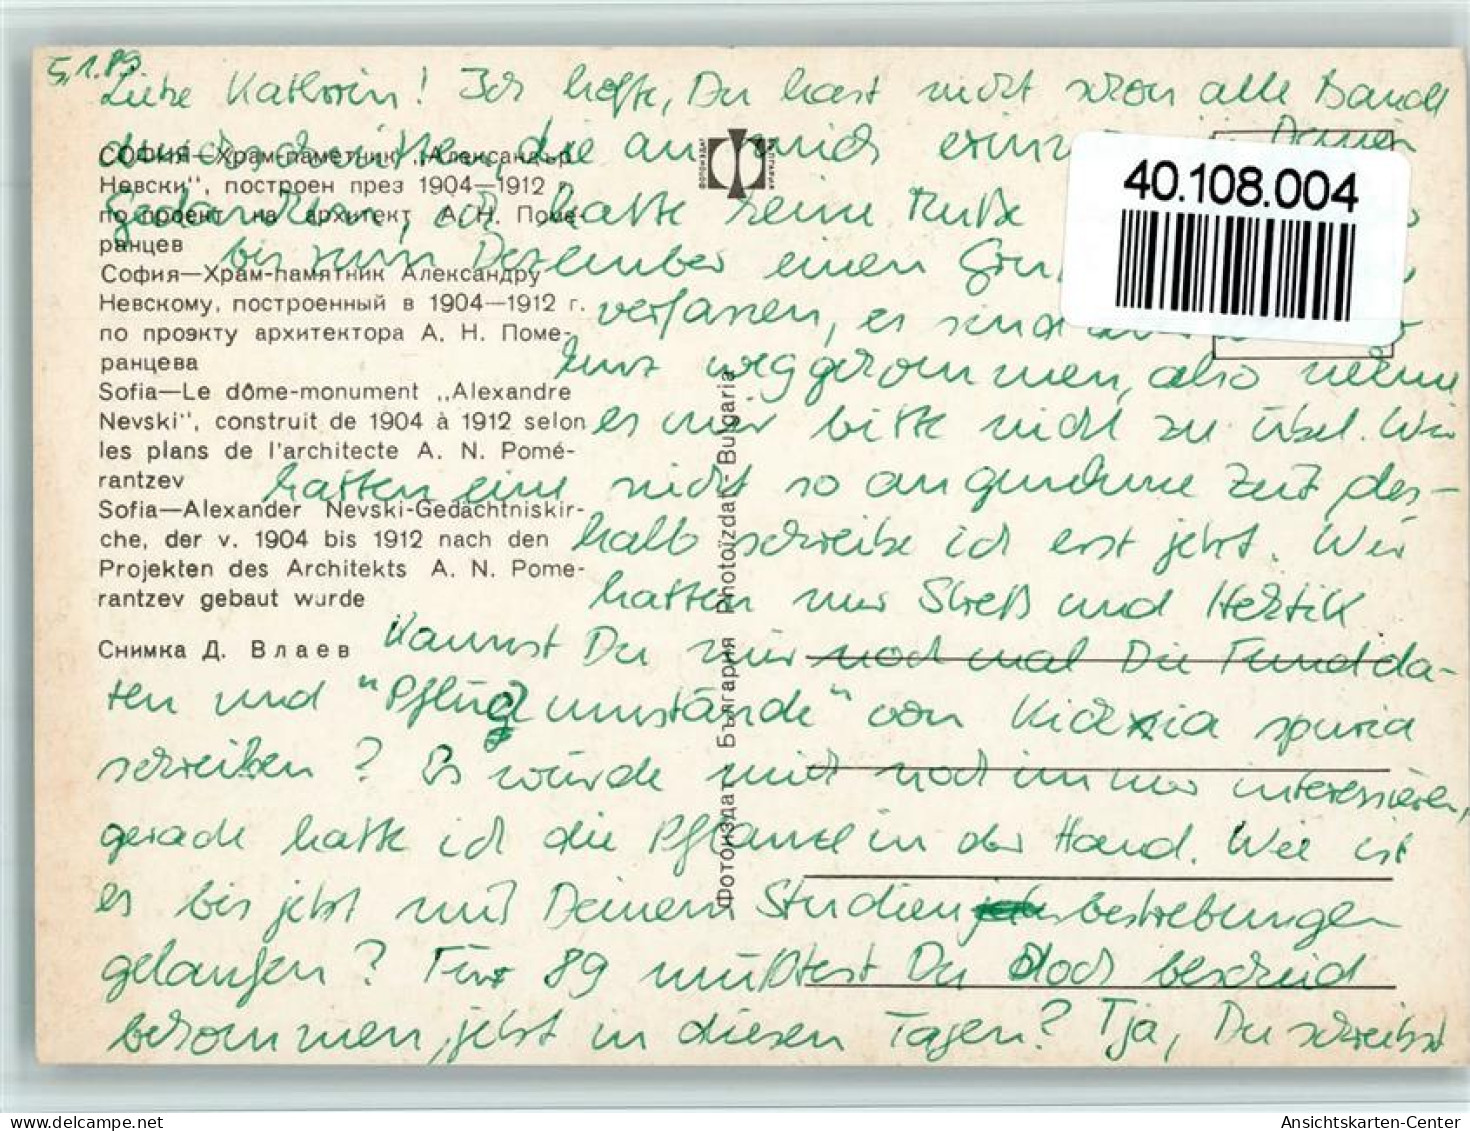 5.1.89
Liebe Kathrin! Ich hoffe, Du hast nicht schon alle Bande
durchschnitten, die an mich in Deinen
Gedanken, ich hatte keine Muße
bis zum Dezember einen
verfassen, es sind
kurz weggekommen, also nehme
es mir bitte nicht zu übel. Wir
hatten eine nicht so angenehme Zeit des-
halb schreibe ich erst jetzt. Wir
hatten nur Streß und Hektik
Kannst Du mir noch mal Die Funddda-
ten und "Pflügumstände" von Kickxia spuria
schreiben? Es würde mich noch immer interessieren,
gerade hatte ich die Pflanze in der Hand. Wie ist
es bis jetzt mit Deinen Studienbestrebungen
gelaufen? Für 89 müßtest Du doch bescheid
bekommen, jetzt in diesen Tagen? Tja, Du schreibst
София—Храм-паметник „Александър
Невски", построен през 1904—1912 г.
по проект на архитект А. Н. Поме-
ранцев
София—Храм-памятник Александру
Невскому, построенный в 1904—1912 г.
по проэкту архитектора А. Н. Поме-
ранцева
Sofia—Le dôme-monument „Alexandre
Nevski", construit de 1904 à 1912 selon
les plans de l'architecte A. N. Pomé-
rantzev
Sofia—Alexander Nevski-Gedächtniskir-
che, der v. 1904 bis 1912 nach den
Projekten des Architekts A. N. Pome-
rantzev gebaut wurde
Снимка Д. Влаев
Фотоиздат България Photoïzdat - Bulgaria
40.108.004
Ansichtskarten-Center